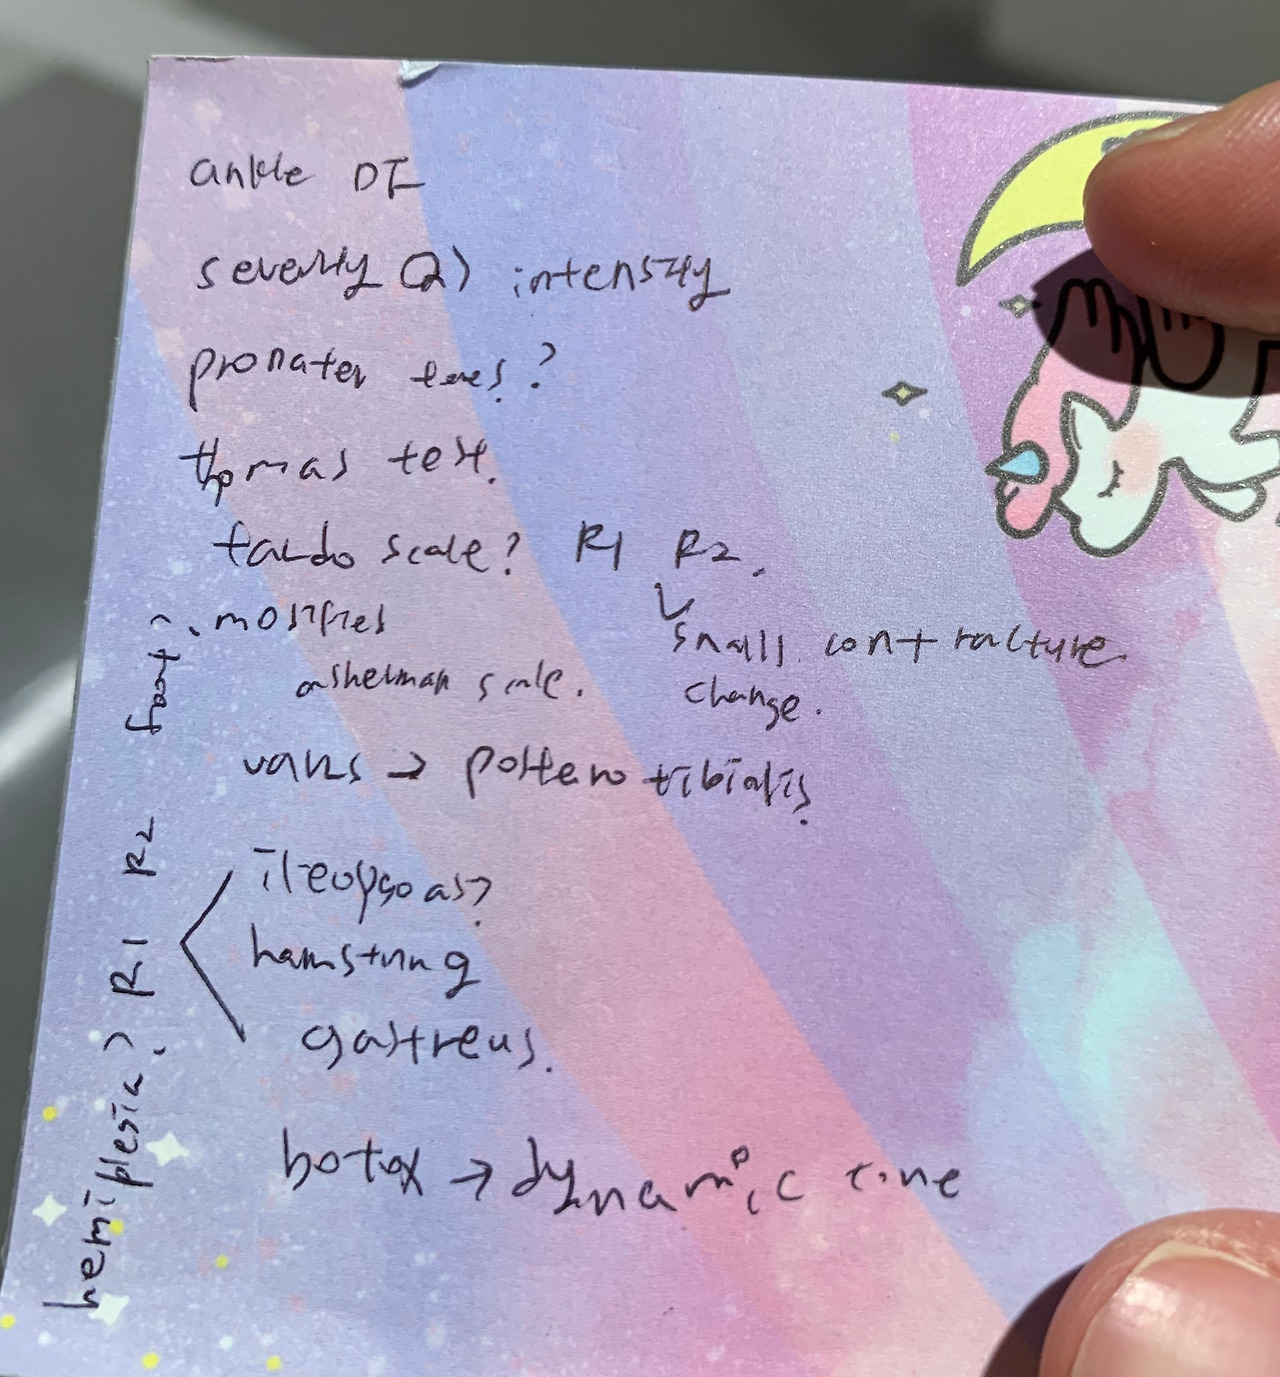 ankle DF
severity (2) intensity
pronater teres?
thomas test.
tardo scale? R1 R2.
modified
small contracture
asherman scale.
change.
varus → posterio tibialis.
ileopsoas?
hamstring
gastreus.
botox → dynamic
hemiplesia.> R1 R2